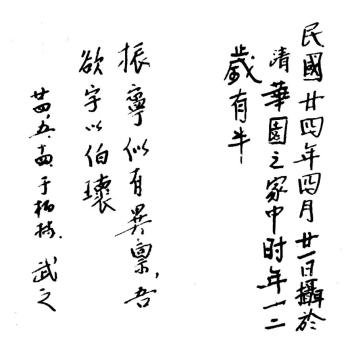 民國廿四年四月廿一日攝於
清華園之家中时年十二
歲有半
振寧似有異稟,吾
欲字以伯瓌
廿四、五、十五于柏林. 武之